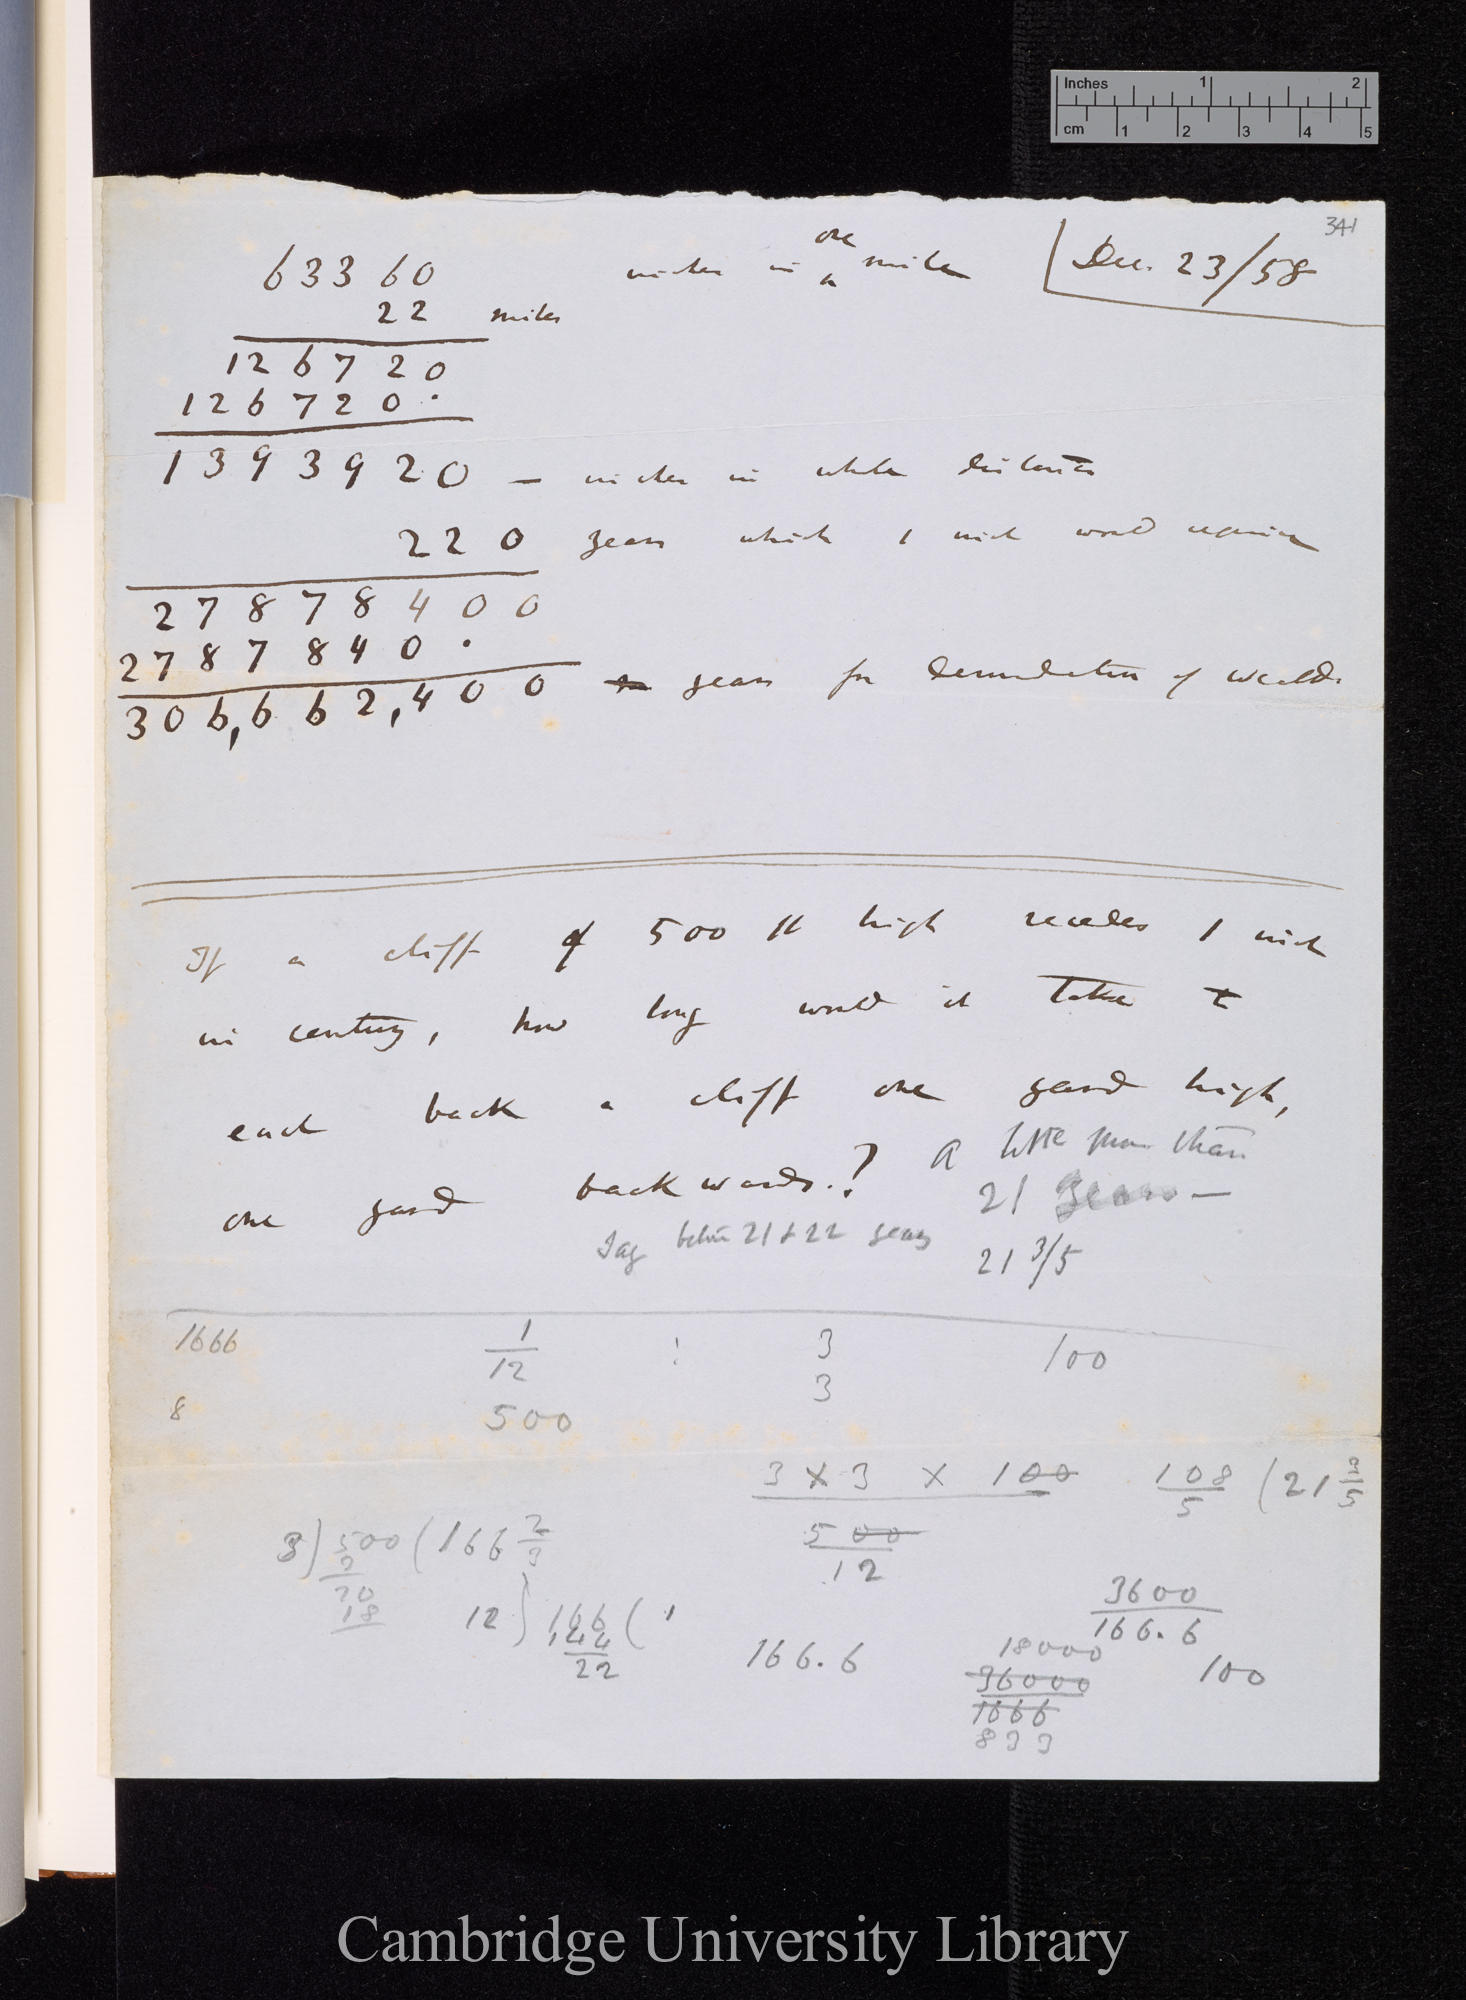 Inches 1 2
cm 1 2 3 4 5
341
63360 inches in one mile
a
Dec. 23/58
22 miles
126720
126720.
1393920 — inches in whole distance
220 years which 1 inch would require
27878400
2787840.
306,662,400 years for denudation of Weald.
If a cliff of 500 ft high recedes 1 inch
in century, how long would it take to
each back a cliff one yard high,
one yard backwards.? A little more than
21 years —
Say between 21 & 22 years
21 3/5
1666 1/12 : 3 100
8 500 3
3 X 3 X 100 108/5 (21 3/5
500/12
3) 500 (166 2/3
3
20
18
12) 166 (1
144
22
166.6
3600
166.6
18000
36000
1666
833
100
Cambridge University Library